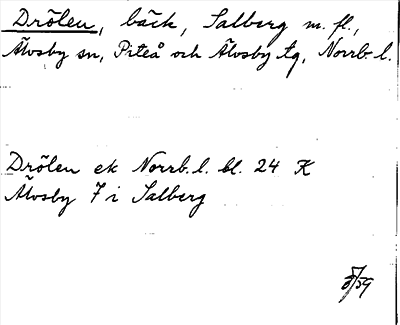 Drölen, bäck, Salberg m. fl.,
Älvsby sn, Piteå och Älvsby tg, Norrb. l.
Drölen ek Norrb. l. bl. 24 K
Älvsby 7 i Salberg